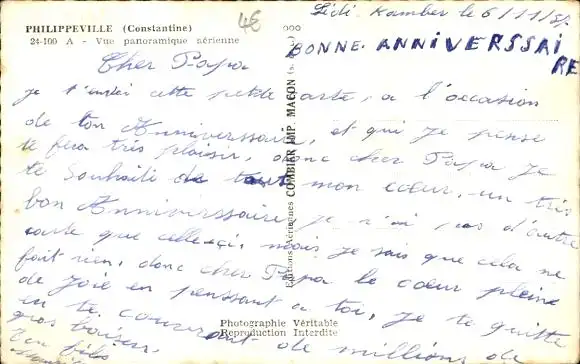 PHILIPPEVILLE (Constantine)
24-100 A - Vue panoramique aérienne
4€
Sidi. Kamber le 6/11/57
BONNE. ANNIVERSSAI
RE
Cher Papa
je t'envoi cette petite carte, a l'occasion
de ton Anniverssaire, et qui je pense
te fera très plaisir, donc cher Papa je
te souhaite de tout mon cœur, un très
bon Anniverssaire, je n'ai pas d'autre
carte que celle-çi, mais je sais que cela ne
fait rien, donc cher Papa le cœur pleine
de joie en penssant a toi, je te quitte
en te couvrant de millions de
gros baiser.
Ton fils
Editions Aériennes COMBIER IMP. MACON
Photographie Véritable
Reproduction Interdite